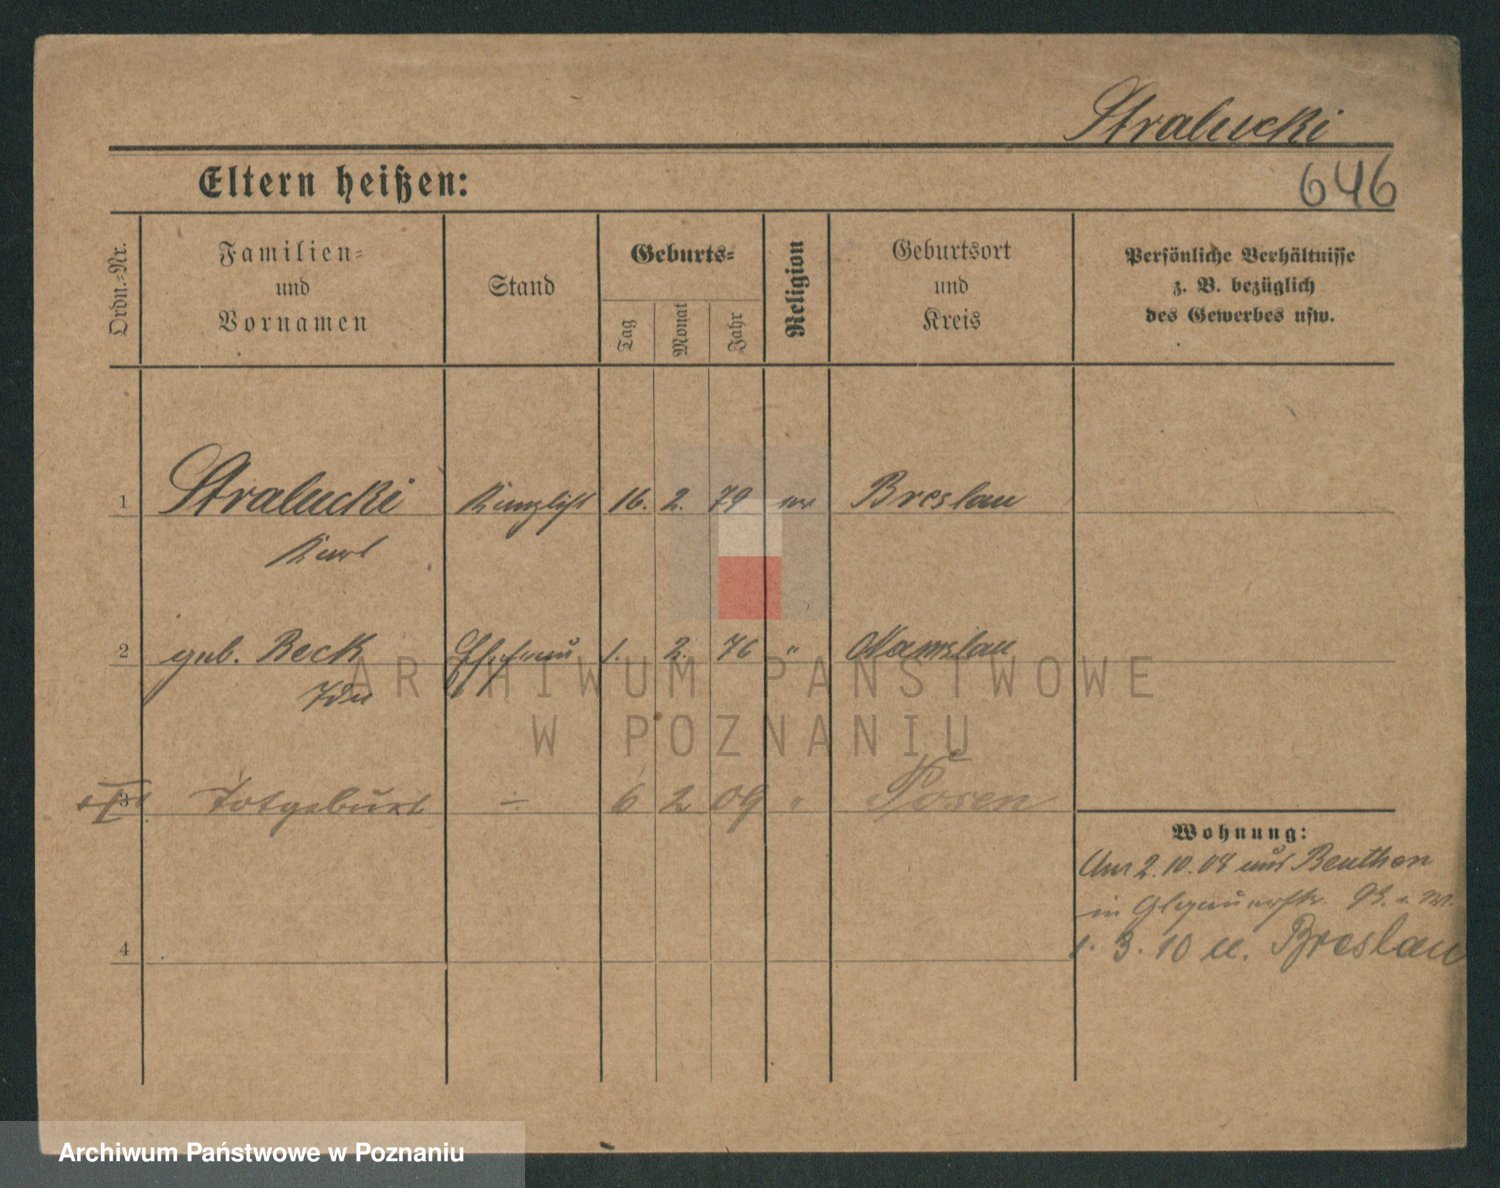 Stralucki
Eltern heißen:
646
Ordn.-Nr.
Familien-
und
Vornamen
Stand
Geburts-
Tag
Monat
Jahr
Religion
Geburtsort
und
Kreis
Persönliche Verhältnisse
z. B. bezüglich
des Gewerbes usw.
1 Stralucki Kanzlist 16. 2. 79 ev Breslau
Karl
2 geb. Beck Ehefrau 1. 2. 76 " Namslau
Ida
ARCHIWUM PAŃSTWOWE
W POZNANIU
3 Totgeburt ÷ 6 2 09 " Posen
Wohnung:
Am 2.10.08 aus Beuthen
in Glogauerstr.
4
1. 3. 10 n. Breslau
Archiwum Państwowe w Poznaniu